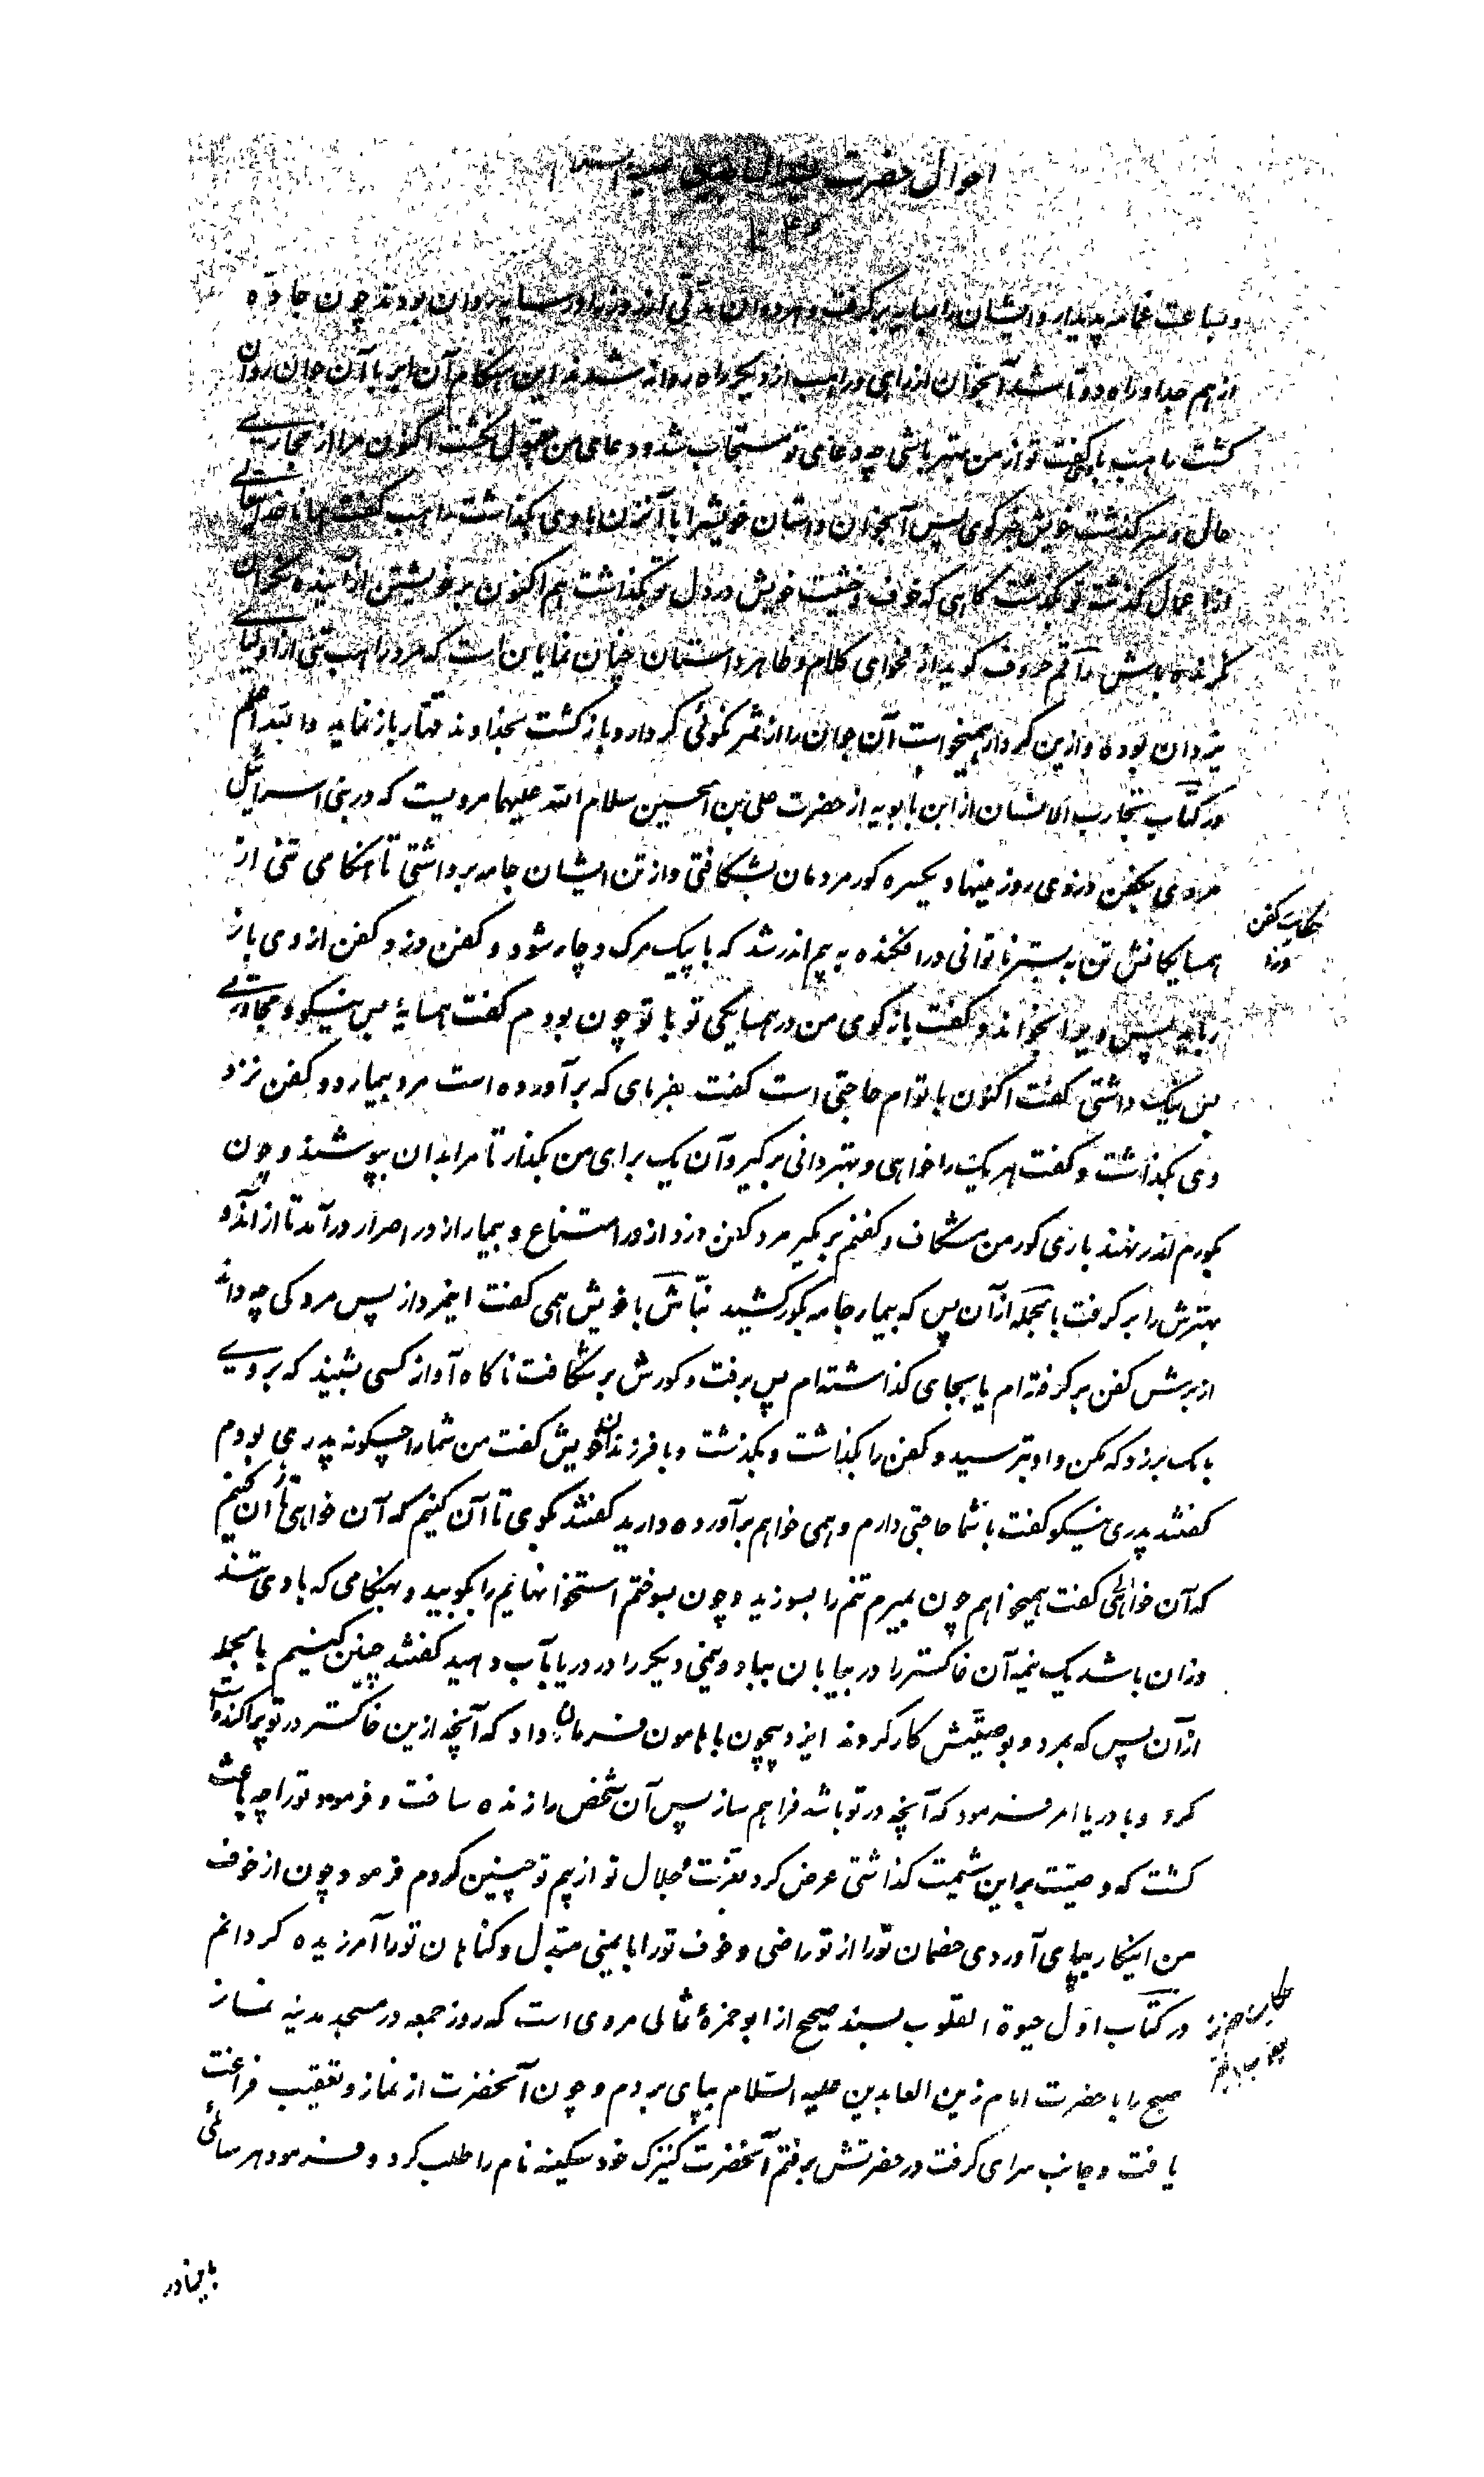 احوال حضرت سید الساجدین علیه السلام
وبساعت غمامه پدیدار وایشان را بسایه برگرفت وهردوان مدتی از روز را در سایه روان بودند چون جاده
از هم جدا و راه دو تا شد آنجوان از راهی و راهب از دیگر راه روانه شدند این هنگام آن ابر با آن جوان روان
گشت راهب باو گفت تو از من بهتر باشی چه دعای تو مستجاب شد ودعای من قبول نگشت اکنون مرا از مجاری
حال و سرگذشت خویش خبر گوی پس آنجوان داستان خویش را با آنزن با وی بگذاشت راهب گفت همانا خدایتعالی
از اعمال گذشته تو بگذشت گاهی که خوف وخشیت خویش در دل تو بگذاشت هم اکنون بر خویشتن از آینده نگران
نگرنده باش راقم حروف گوید از فحوای کلام وظاهر داستان چنان نمایان است که مرد راهب تنی از اولیای
یزدان بوده وازین کردار همیخواست آن جوان را از ثمر نکوئی کردار وبازگشت بخداوند قهار باز نماید والله اعلم
در کتاب تجارب الانسان از ابن بابویه از حضرت علی بن الحسین سلام الله علیهما مرویست که در بنی اسرائیل
مردی بکفن دزدی روز مینهاد ویکسره گور مردمان بشکافتی واز تن ایشان جامه برداشتی تا هنگامی تنی از
همسایگانش تن به بستر ناتوانی در افکنده به بیم اندر شد که با پیک مرک دچار شود و کفن دزد کفن از وی باز
رباید پس ویرا بخواند و گفت بازگوی من در همسایگی تو با تو چون بودم گفت همسایهٔ بس نیکو و مجاورتی
بس نیک داشتی گفت اکنون با توام حاجتی است گفت بفرمای که برآورده است مرد بیمار دو کفن نزد
وی بگذاشت و گفت هریک را خواهی وبهتر دانی برگیر وآن یک برای من بگذار تا مرا بدان بپوشند وچون
بگورم اندر نهند باری گور من مشکاف و کفنم برمگیر مرد کفن دزد از در امتناع وبیمار از در اصرار درآمد تا از آندو
بهترش را برگرفت بالجمله از آن پس که بیمار جامه بگور کشید نبّاش با خویش همی گفت اینمرد از پس مردگی چه داند
از برش کفن برگرفته‌ام یا بجای گذاشته‌ام پس برفت و گورش برشکافت ناگاه آواز کسی بشنید که بروی
بانک برزد که مکن واو بترسید و کفن را بگذاشت وبگذشت وبا فرزندان خویش گفت من شما را چگونه پدر می بودم
گفتند پدری نیکو گفت با شما حاجتی دارم وهمی خواهم برآورده دارید گفتند بگوی تا آن کنیم که آن خواهی تا آن کنیم
که آن خواهی گفت همیخواهم چون بمیرم تنم را بسوزید وچون بسوختم استخوانهایم را بکوبید وهنگامی که بادی تند
وزان باشد یک نیمه آن خاکستر را در بیابان بباد ونیمی دیگر را در دریا بآب دهید گفتند چنین کنیم بالجمله
از آن پس که بمرد وبوصیّتش کار کردند ایزد بیچون با هامون فرمان داد که آنچه ازین خاکستر در تو پراکنده است
کرد وبا دریا امر فرمود که آنچه در تو باشد فراهم ساز پس آن شخص را زنده ساخت وفرمود تو را چه باعث
گشت که وصیّت بر این شیمت گذاشتی عرض کرد بعزّت وجلال تو از بیم تو چنین کردم فرمود چون از خوف
من اینکار بپای آوردی خصمان تو را از تو راضی وخوف تو را بایمنی مبدّل وگناهان تو را آمرزیده گردانم
در کتاب اوّل حیوة القلوب بسند صحیح از ابو حمزهٔ ثمالی مروی است که روز جمعه در مسجد مدینه نماز
صبح را با حضرت امام زین العابدین علیه السّلام بپای بردم وچون آنحضرت از نماز وتعقیب فراغت
یافت وجانب سرای گرفت در حضرتش برفتم آنحضرت کنیزک خود سکینه نام را طلب کرد وفرمود هر سائلی
حکایت کفن
دزد
حکایت حضرت
یعقوب
باینمادر